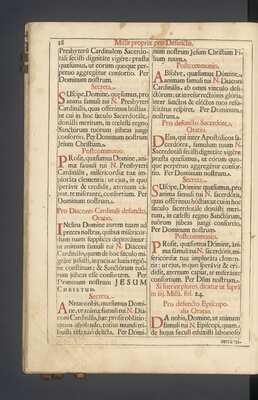 28 Missæ propriæ pro Defunctis.
Presbyterii Cardinalem Sacerdo-
tali fecisti dignitate vigere: præsta
quæsumus, ut eorum quoque per-
petuo aggregetur consortio. Per
Dominum nostrum.
Secreta.
SUscipe, Domine, quæsumus, pro
anima famuli tui N. Presbyteri
Cardinalis, quas offerimus hostias:
ut cui in hoc sæculo Sacerdotale
donasti meritum, in cælesti regno
Sanctorum tuorum jubeas jungi
consortio. Per Dominum nostrum
Jesum Christum.
Postcommunio.
PRosit, quæsumus Domine, ani-
mæ famuli tui N. Presbyteri
Cardinalis, misericordiæ tuæ im-
plorata clementia: ut ejus, in quo
speravit & credidit, æternam ca-
piat, te miserante, consortium. Per
Dominum nostrum.
Pro Diacono Cardinali defuncto,
Oratio.
INclina Domine aurem tuam ad
preces nostras, quibus misericor-
diam tuam supplices deprecamur:
ut animam famuli tui N. Diaconi
Cardinalis, quam de hoc sæculo mi-
grare jussisti, in pacis ac lucis regio-
ne constituas; & Sanctorum tuo-
rum jubeas esse consortem. Per
Dominum nostrum JESUM
Christum.
Secreta.
ANnue nobis, quæsumus Domi-
ne, ut animæ famuli tui N. Dia-
coni Cardinalis, hæc prosit oblatio:
quam immolando, totius mundi tri-
buisti relaxari delicta. Per Domi-
num nostrum Jesum Christum Fi-
lium tuum.
Postcommunio.
ABsolve, quæsumus Domine,
animam famuli tui N. Diaconi
Cardinalis, ab omni vinculo deli-
ctorum: ut in resurrectionis gloria,
inter Sanctos & electos tuos resu-
scitatus respiret. Per Dominum
nostrum.
Pro defuncto Sacerdote,
Oratio.
DEus, qui inter Apostolicos Sa-
cerdotes, famulum tuum N.
Sacerdotali fecisti dignitate vigere:
præsta quæsumus, ut eorum quo-
que perpetuo aggregetur consor-
tio. Per Dominum nostrum.
Secreta.
SUscipe, Domine quæsumus, pro
anima famuli tui N. Sacerdotis,
quas offerimus hostias: ut cui in hoc
sæculo Sacerdotale donasti meri-
tum, in cælesti regno Sanctorum
tuorum jubeas jungi consortio.
Per Dominum nostrum.
Postcommunio.
PRosit, quæsumus Domine, ani-
mæ famuli tui N. Sacerdotis, mi-
sericordiæ tuæ implorata clemen-
tia: ut ejus, in quo speravit & cre-
didit, æternum capiat, te miserante
consortium. Per Dñm nostrum.
Pro defuncto Episcopo,
alia Oratio.
DA nobis, Domine, ut animam
famuli tui N. Episcopi, quam
de hujus sæculi eduxisti laborioso